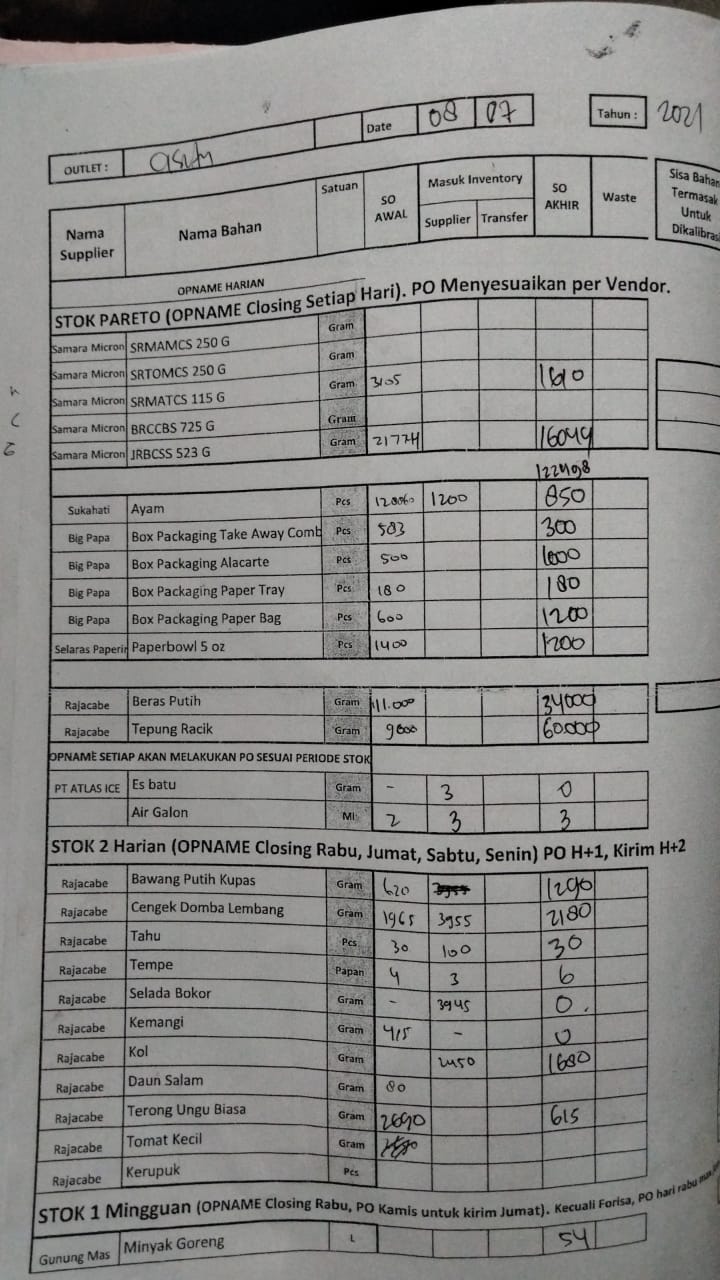 Date 08 07 Tahun : 2021
OUTLET :
Nama Supplier Nama Bahan Satuan SO AWAL Masuk Inventory Supplier Transfer SO AKHIR Waste Sisa Bahan Termasak Untuk Dikalibras
OPNAME HARIAN
STOK PARETO (OPNAME Closing Setiap Hari). PO Menyesuaikan per Vendor.
Samara Micron SRMAMCS 250 G Gram
Samara Micron SRTOMCS 250 G Gram
Samara Micron SRMATCS 115 G Gram 3105
Samara Micron BRCCBS 725 G Gram
Samara Micron JRBCSS 523 G Gram 21774 16044
Sukahati Ayam Pcs 1200 850
Big Papa Box Packaging Take Away Comb Pcs 583 300
Big Papa Box Packaging Alacarte Pcs 500 1000
Big Papa Box Packaging Paper Tray Pcs 180 180
Big Papa Box Packaging Paper Bag Pcs 600 1200
Selaras Paperin Paperbowl 5 oz Pcs 1400 1200
Rajacabe Beras Putih Gram 11.000 34000
Rajacabe Tepung Racik Gram 9600 60.000
OPNAME SETIAP AKAN MELAKUKAN PO SESUAI PERIODE STOK
PT ATLAS ICE Es batu Gram - 3 0
Air Galon Ml 2 3 3
STOK 2 Harian (OPNAME Closing Rabu, Jumat, Sabtu, Senin) PO H+1, Kirim H+2
Rajacabe Bawang Putih Kupas Gram 620 1290
Rajacabe Cengek Domba Lembang Gram 1965 3955 2180
Rajacabe Tahu Pcs 30 100 30
Rajacabe Tempe Papan 4 3 6
Rajacabe Selada Bokor Gram - 3945 0.
Rajacabe Kemangi Gram 415 - 0
Rajacabe Kol Gram 2450 1680
Rajacabe Daun Salam Gram 80
Rajacabe Terong Ungu Biasa Gram 2690 615
Rajacabe Tomat Kecil Gram
Rajacabe Kerupuk Pcs
STOK 1 Mingguan (OPNAME Closing Rabu, PO Kamis untuk kirim Jumat). Kecuali Forisa, PO hari rabu
Gunung Mas Minyak Goreng L 54